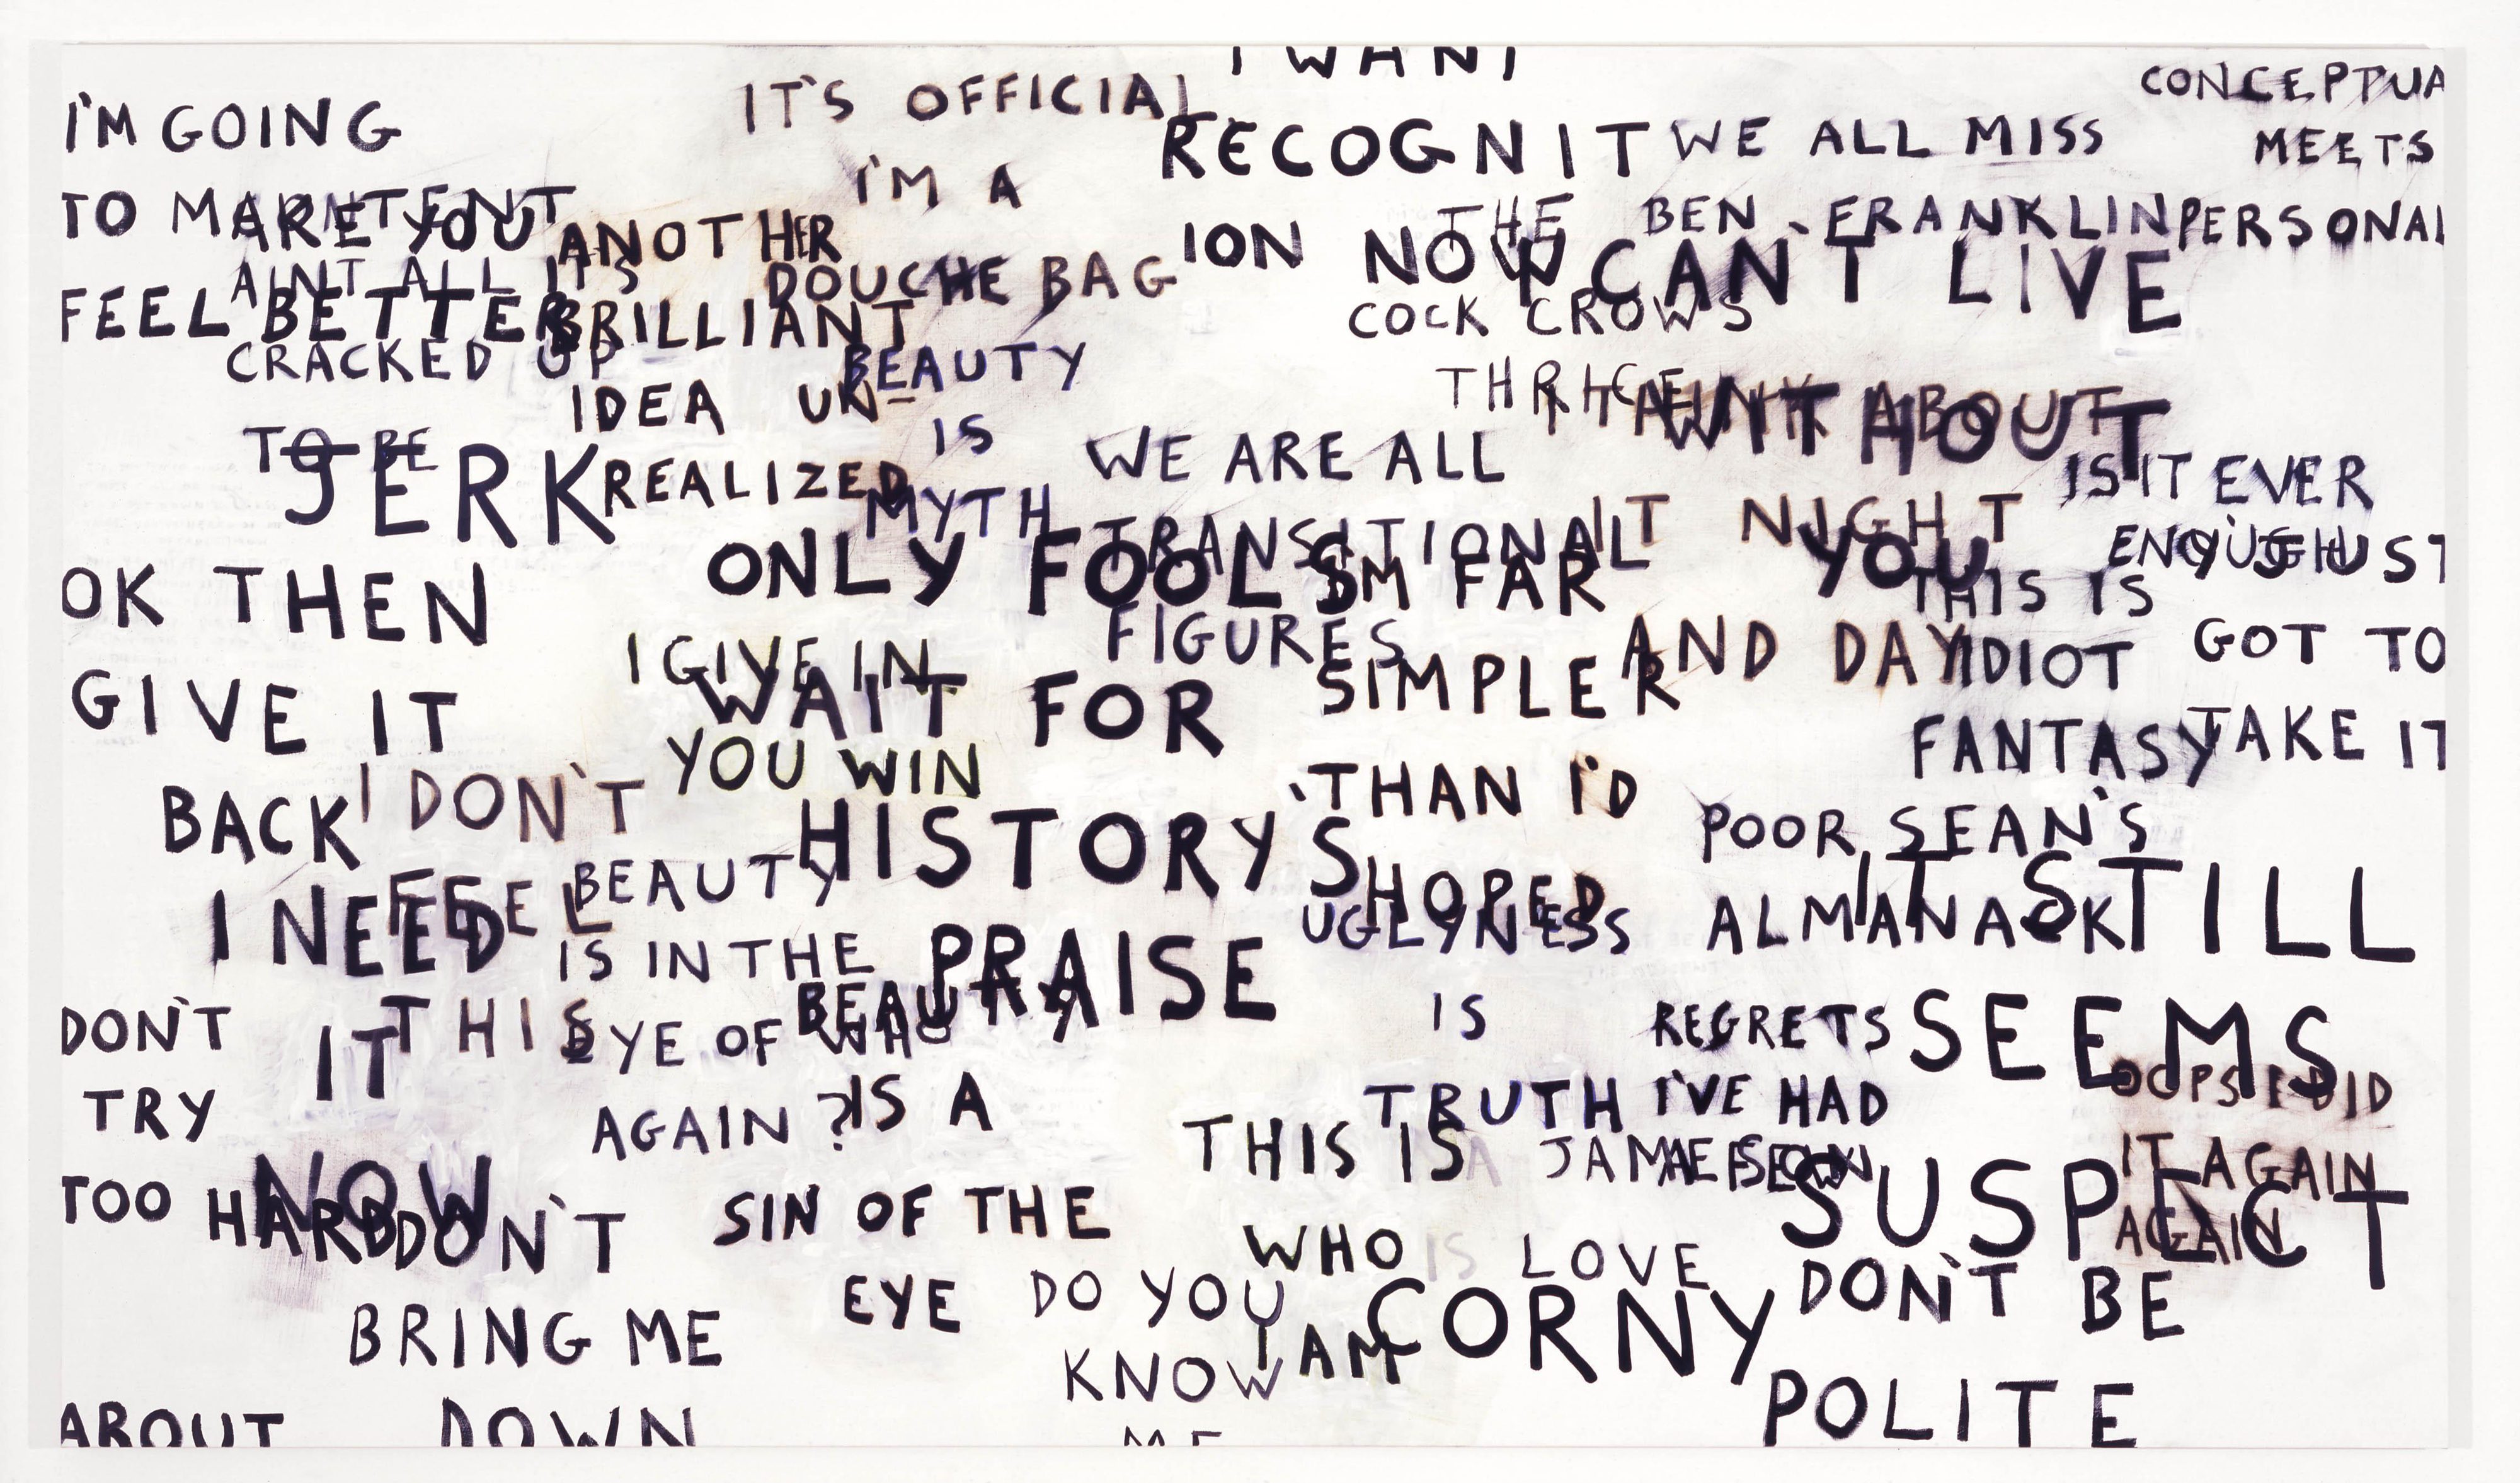 I'M GOING
TO MAKE YOU
FEEL BETTER
JERK
CONTENT
AINT ALL IT'S
CRACKED UP
TO BE
ANOTHER
BRILLIANT
IDEA UN-
REALIZED
IT'S OFFICIAL
I'M A
DOUCHE BAG
BEAUTY
IS
MYTH
I WANT
RECOGNIT
ION NOW
WE ALL MISS
BEN FRANKLIN
CONCEPTUA
MEETS
PERSONAL
THE
COCK CROWS
THRICE
I CAN'T LIVE
WITHOUT
YOU
I THINK ABOUT
IT NIGHT
AND DAY
WE ARE ALL
TRANSITIONAL
FIGURES
IS IT EVER
ENOUGH
YOU JUST
GOT TO
TAKE IT
THIS IS
IDIOT
FANTASY
OK THEN
GIVE IT
BACK
I NEED
IT
NOW
ONLY FOOLS
WAIT FOR
HISTORY'S
PRAISE
I'M FAR
SIMPLER
THAN I'D
HOPED
I GIVE IN
YOU WIN
I DON'T
FEEL
THIS
BEAUTY
IS IN THE
EYE OF WHO
AGAIN?
BEAUTY
IS A
SIN OF THE
EYE
UGLYNESS
IS
TRUTH
POOR SEAN'S
ALMANACK
IT STILL
SEEMS
SUSPECT
REGRETS
I'VE HAD
OOPS I DID
IT AGAIN
AGAIN
DON'T
TRY
TOO HARD
DON'T
BRING ME
DOWN
ABOUT
THIS IS
WHO
I AM
LOVE
IS
CORNY
DO YOU
KNOW
ME
DON'T BE
POLITE